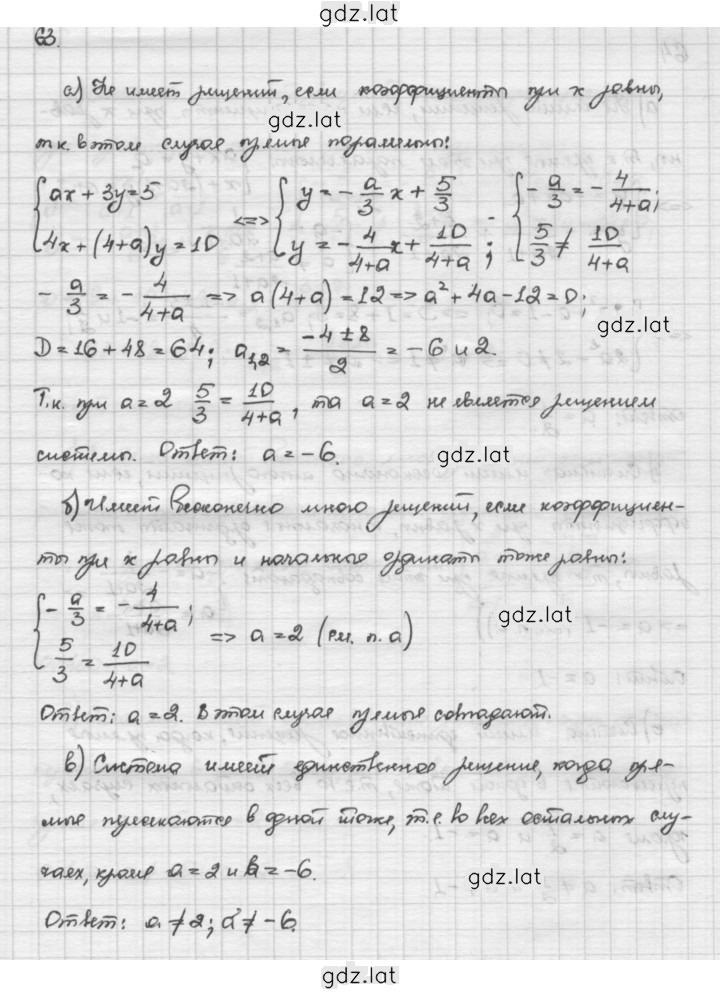 gdz.lat
63.
а) Не имеет решений, если коэффициенты при x равны,
gdz.lat
т.к. в этом случае прямые параллельны:
{ax + 3y = 5 <=> {y = -a/3 x + 5/3 ; {-a/3 = -4/(4+a);
{4x + (4+a)y = 10 {y = -4/(4+a) x + 10/(4+a) ; {5/3 ≠ 10/(4+a)
-a/3 = -4/(4+a) => a(4+a) = 12 => a² + 4a - 12 = 0;
D = 16 + 48 = 64; a₁,₂ = (-4 ± 8)/2 = -6 и 2.
Т.к. при a = 2 5/3 = 10/(4+a), то a = 2 не является решением
системы. Ответ: a = -6.
gdz.lat
б) Имеет бесконечно много решений, если коэффициен-
ты при x равны и начальные ординаты тоже равны:
{-a/3 = -4/(4+a); => a = 2 (см. п. а)
{5/3 = 10/(4+a)
gdz.lat
Ответ: a = 2. В этом случае прямые совпадают.
gdz.lat
в) Система имеет единственное решение, когда пря-
мые пересекаются в одной точке, т.е. во всех остальных слу-
чаях, кроме a = 2 и a = -6.
gdz.lat
Ответ: a ≠ 2; a ≠ -6.
gdz.lat